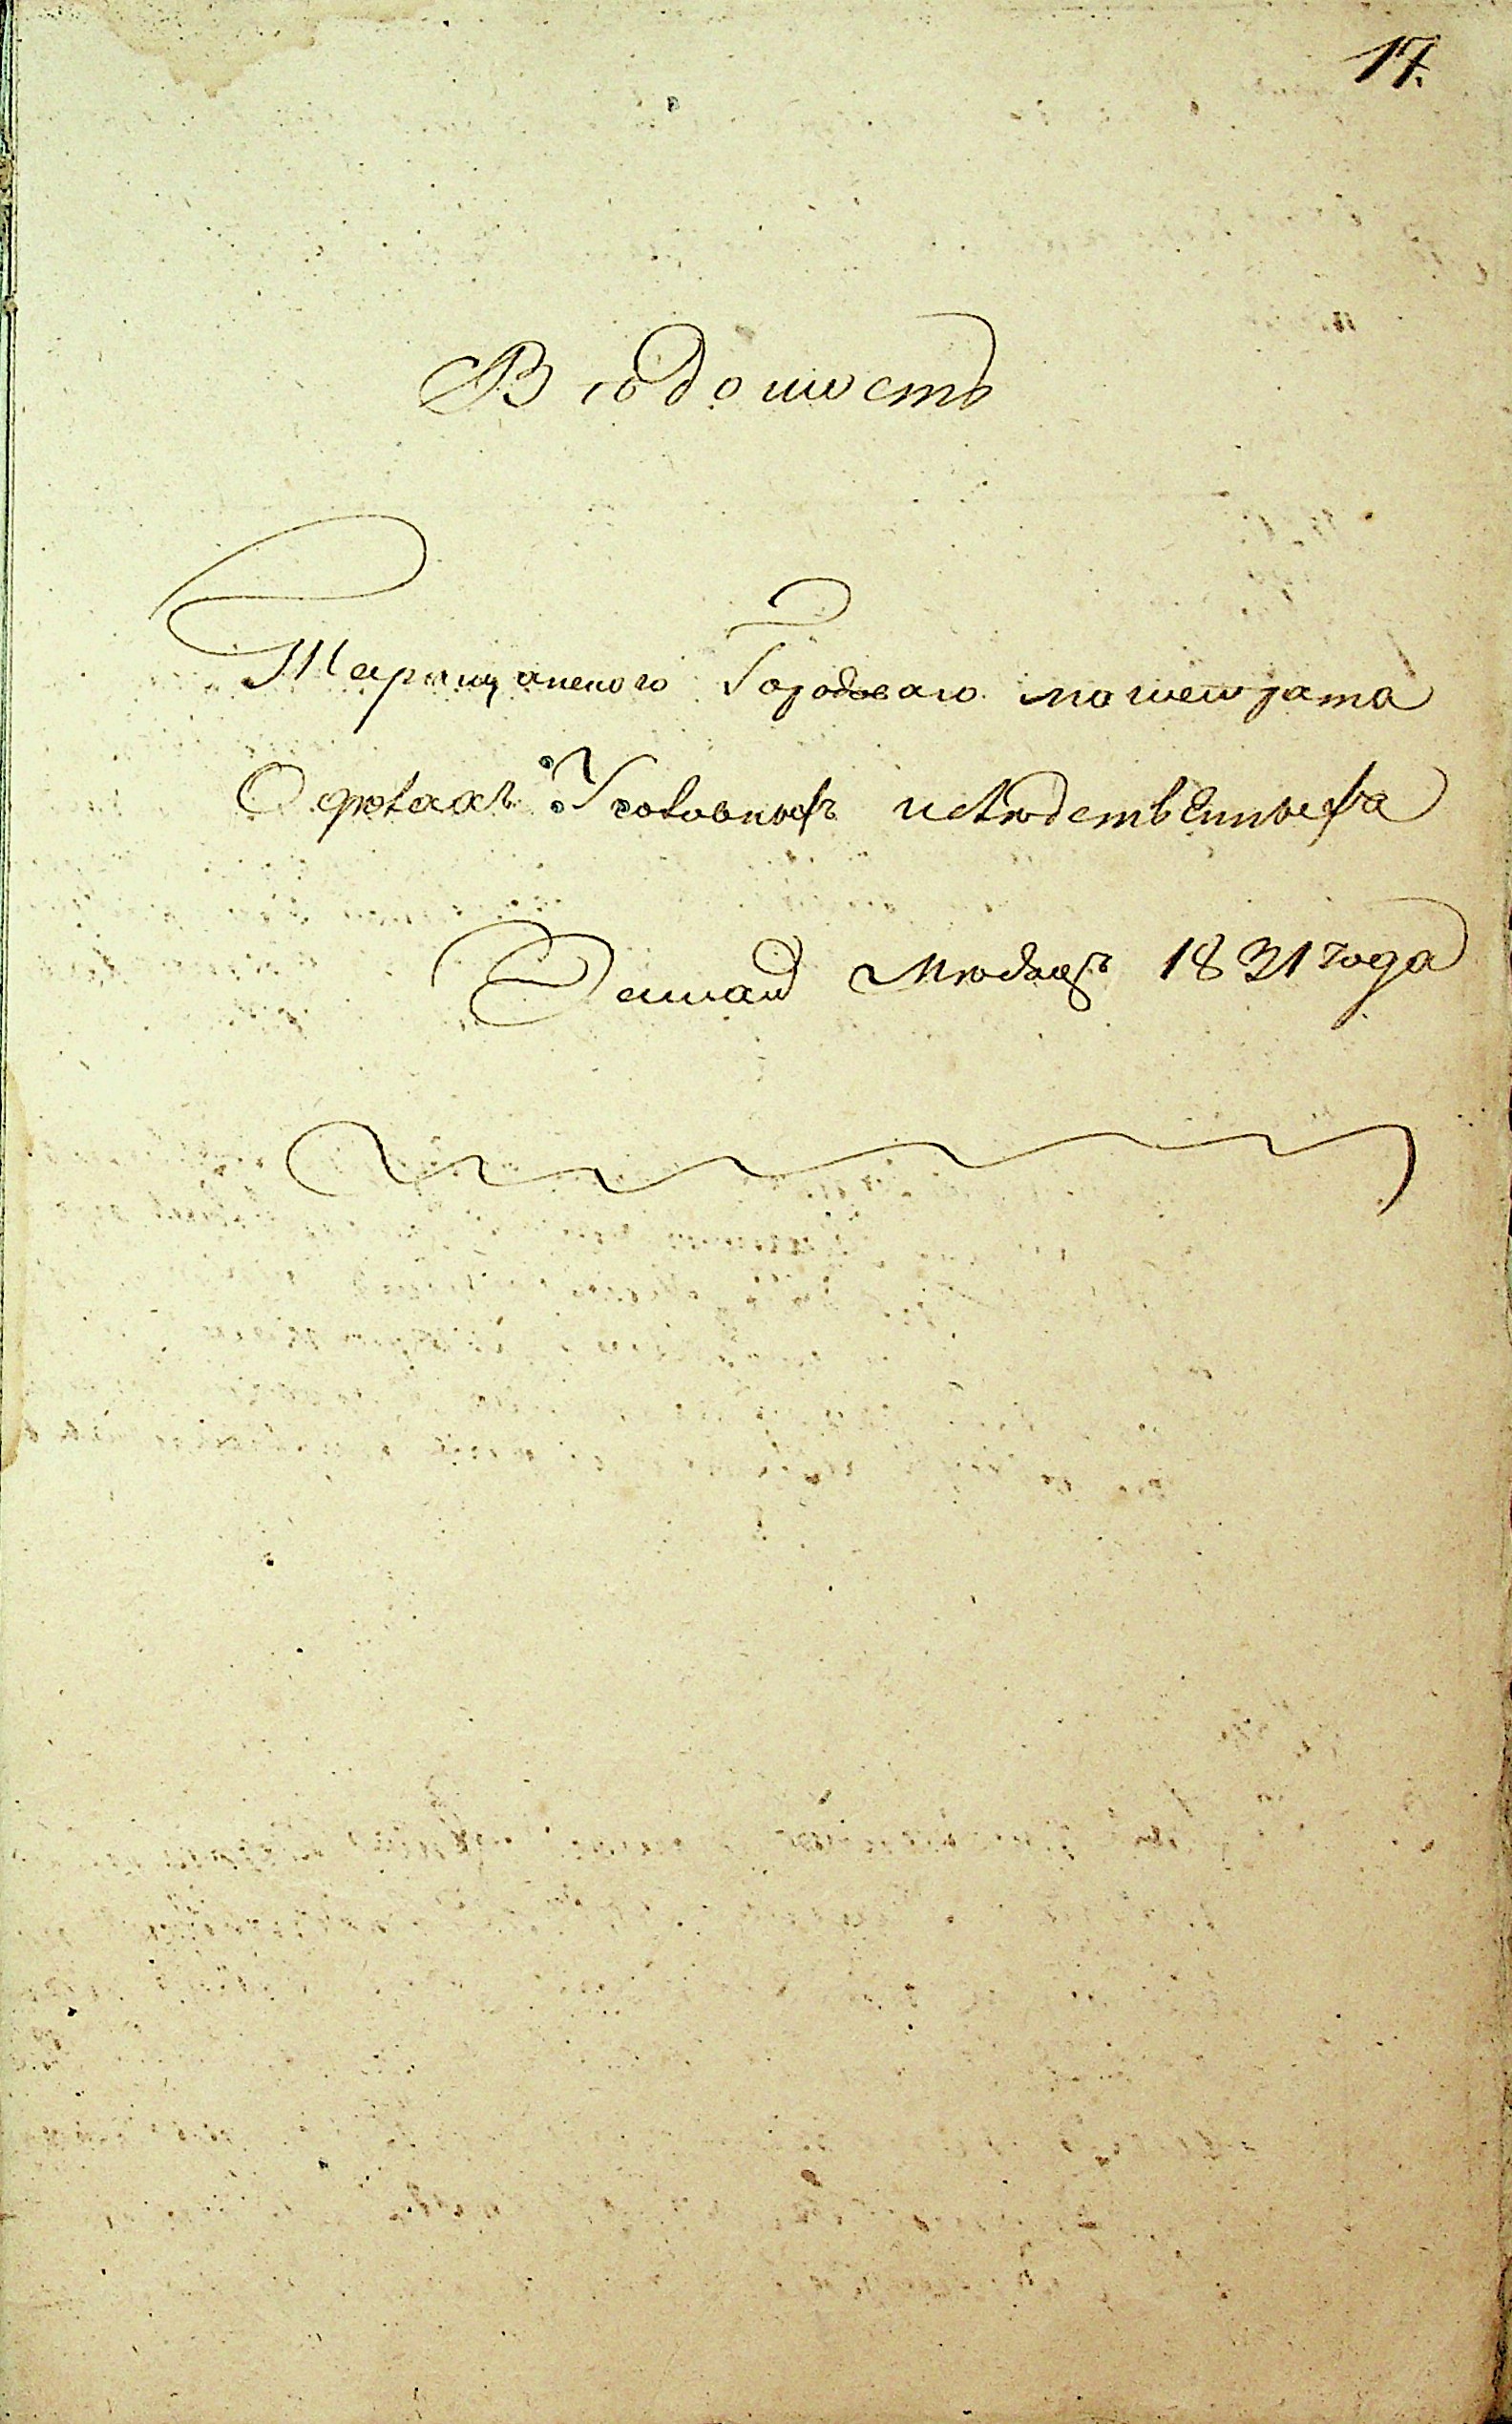 17.
Вѣдомость
Таращанского Городоваго магистрата
О дѣлахъ Уголовныхъ ислѣдственныхъ
За май мѣсяцъ 1831 года